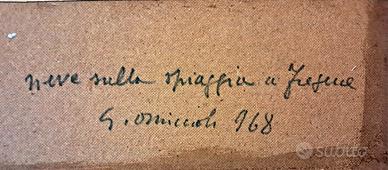 neve sulla spiaggia a Fregene
G. Omiccioli 968
subito